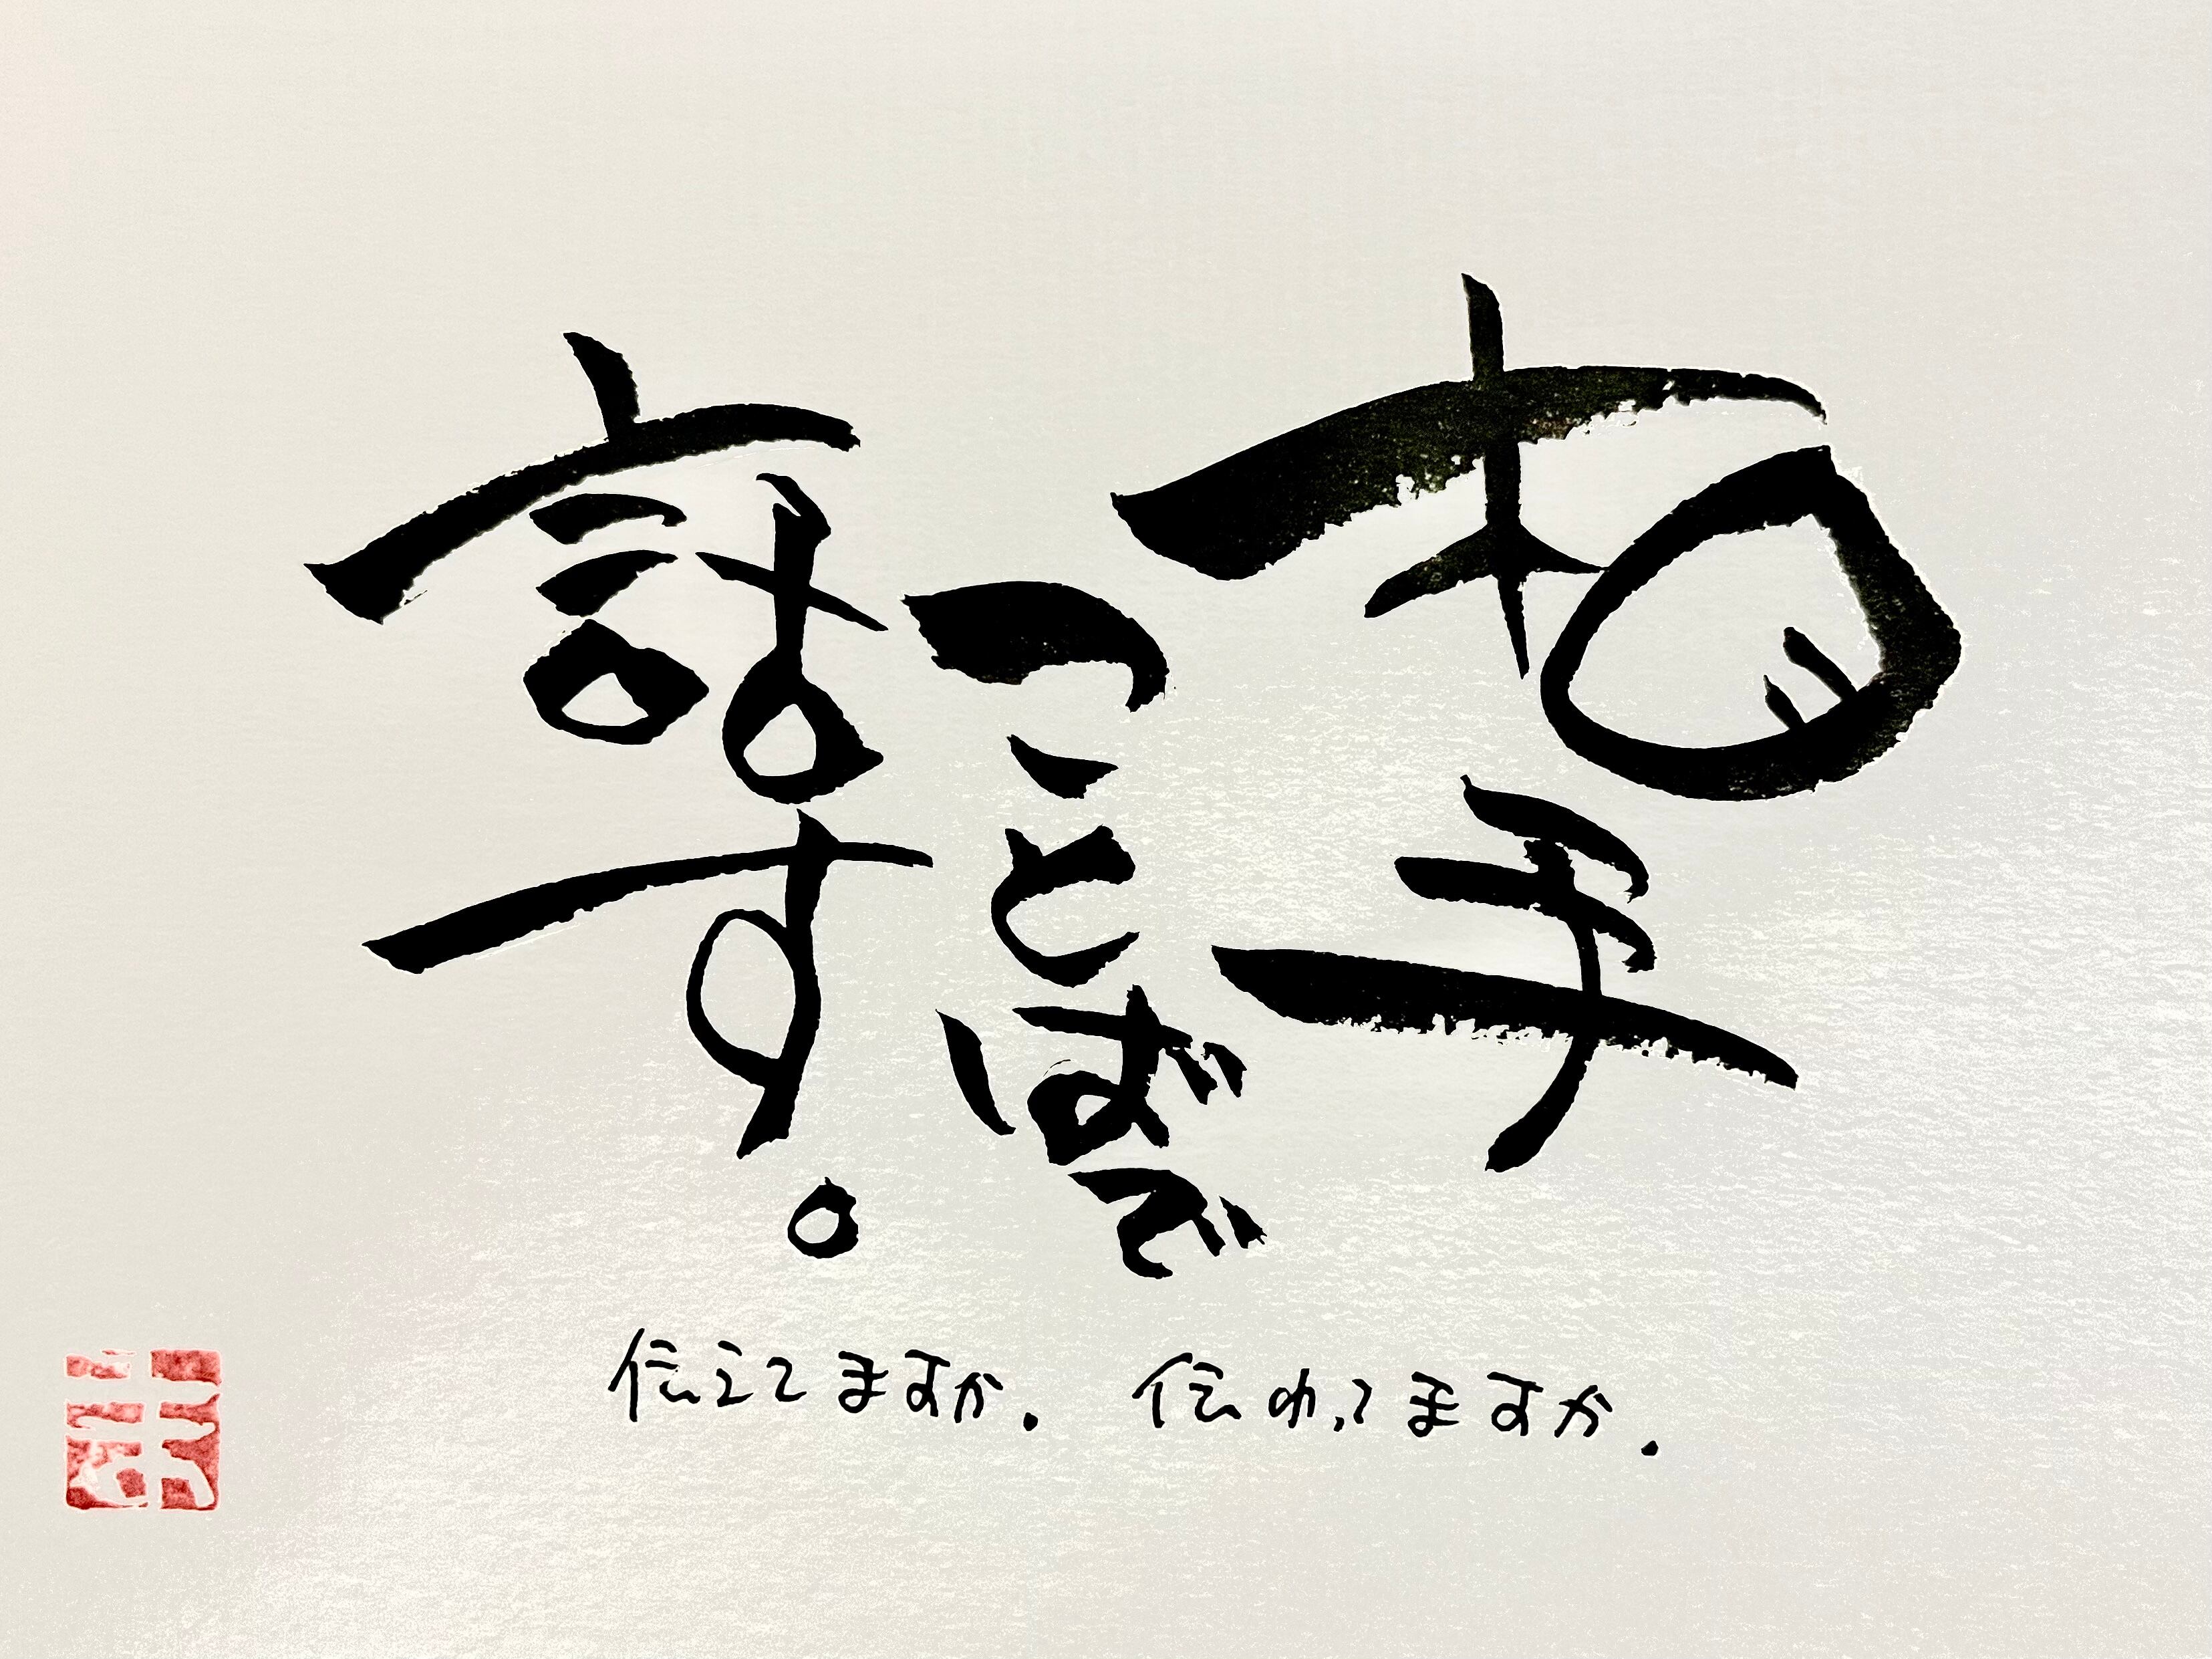 相手
ことばで
話す。
伝えてますか. 伝わってますか.